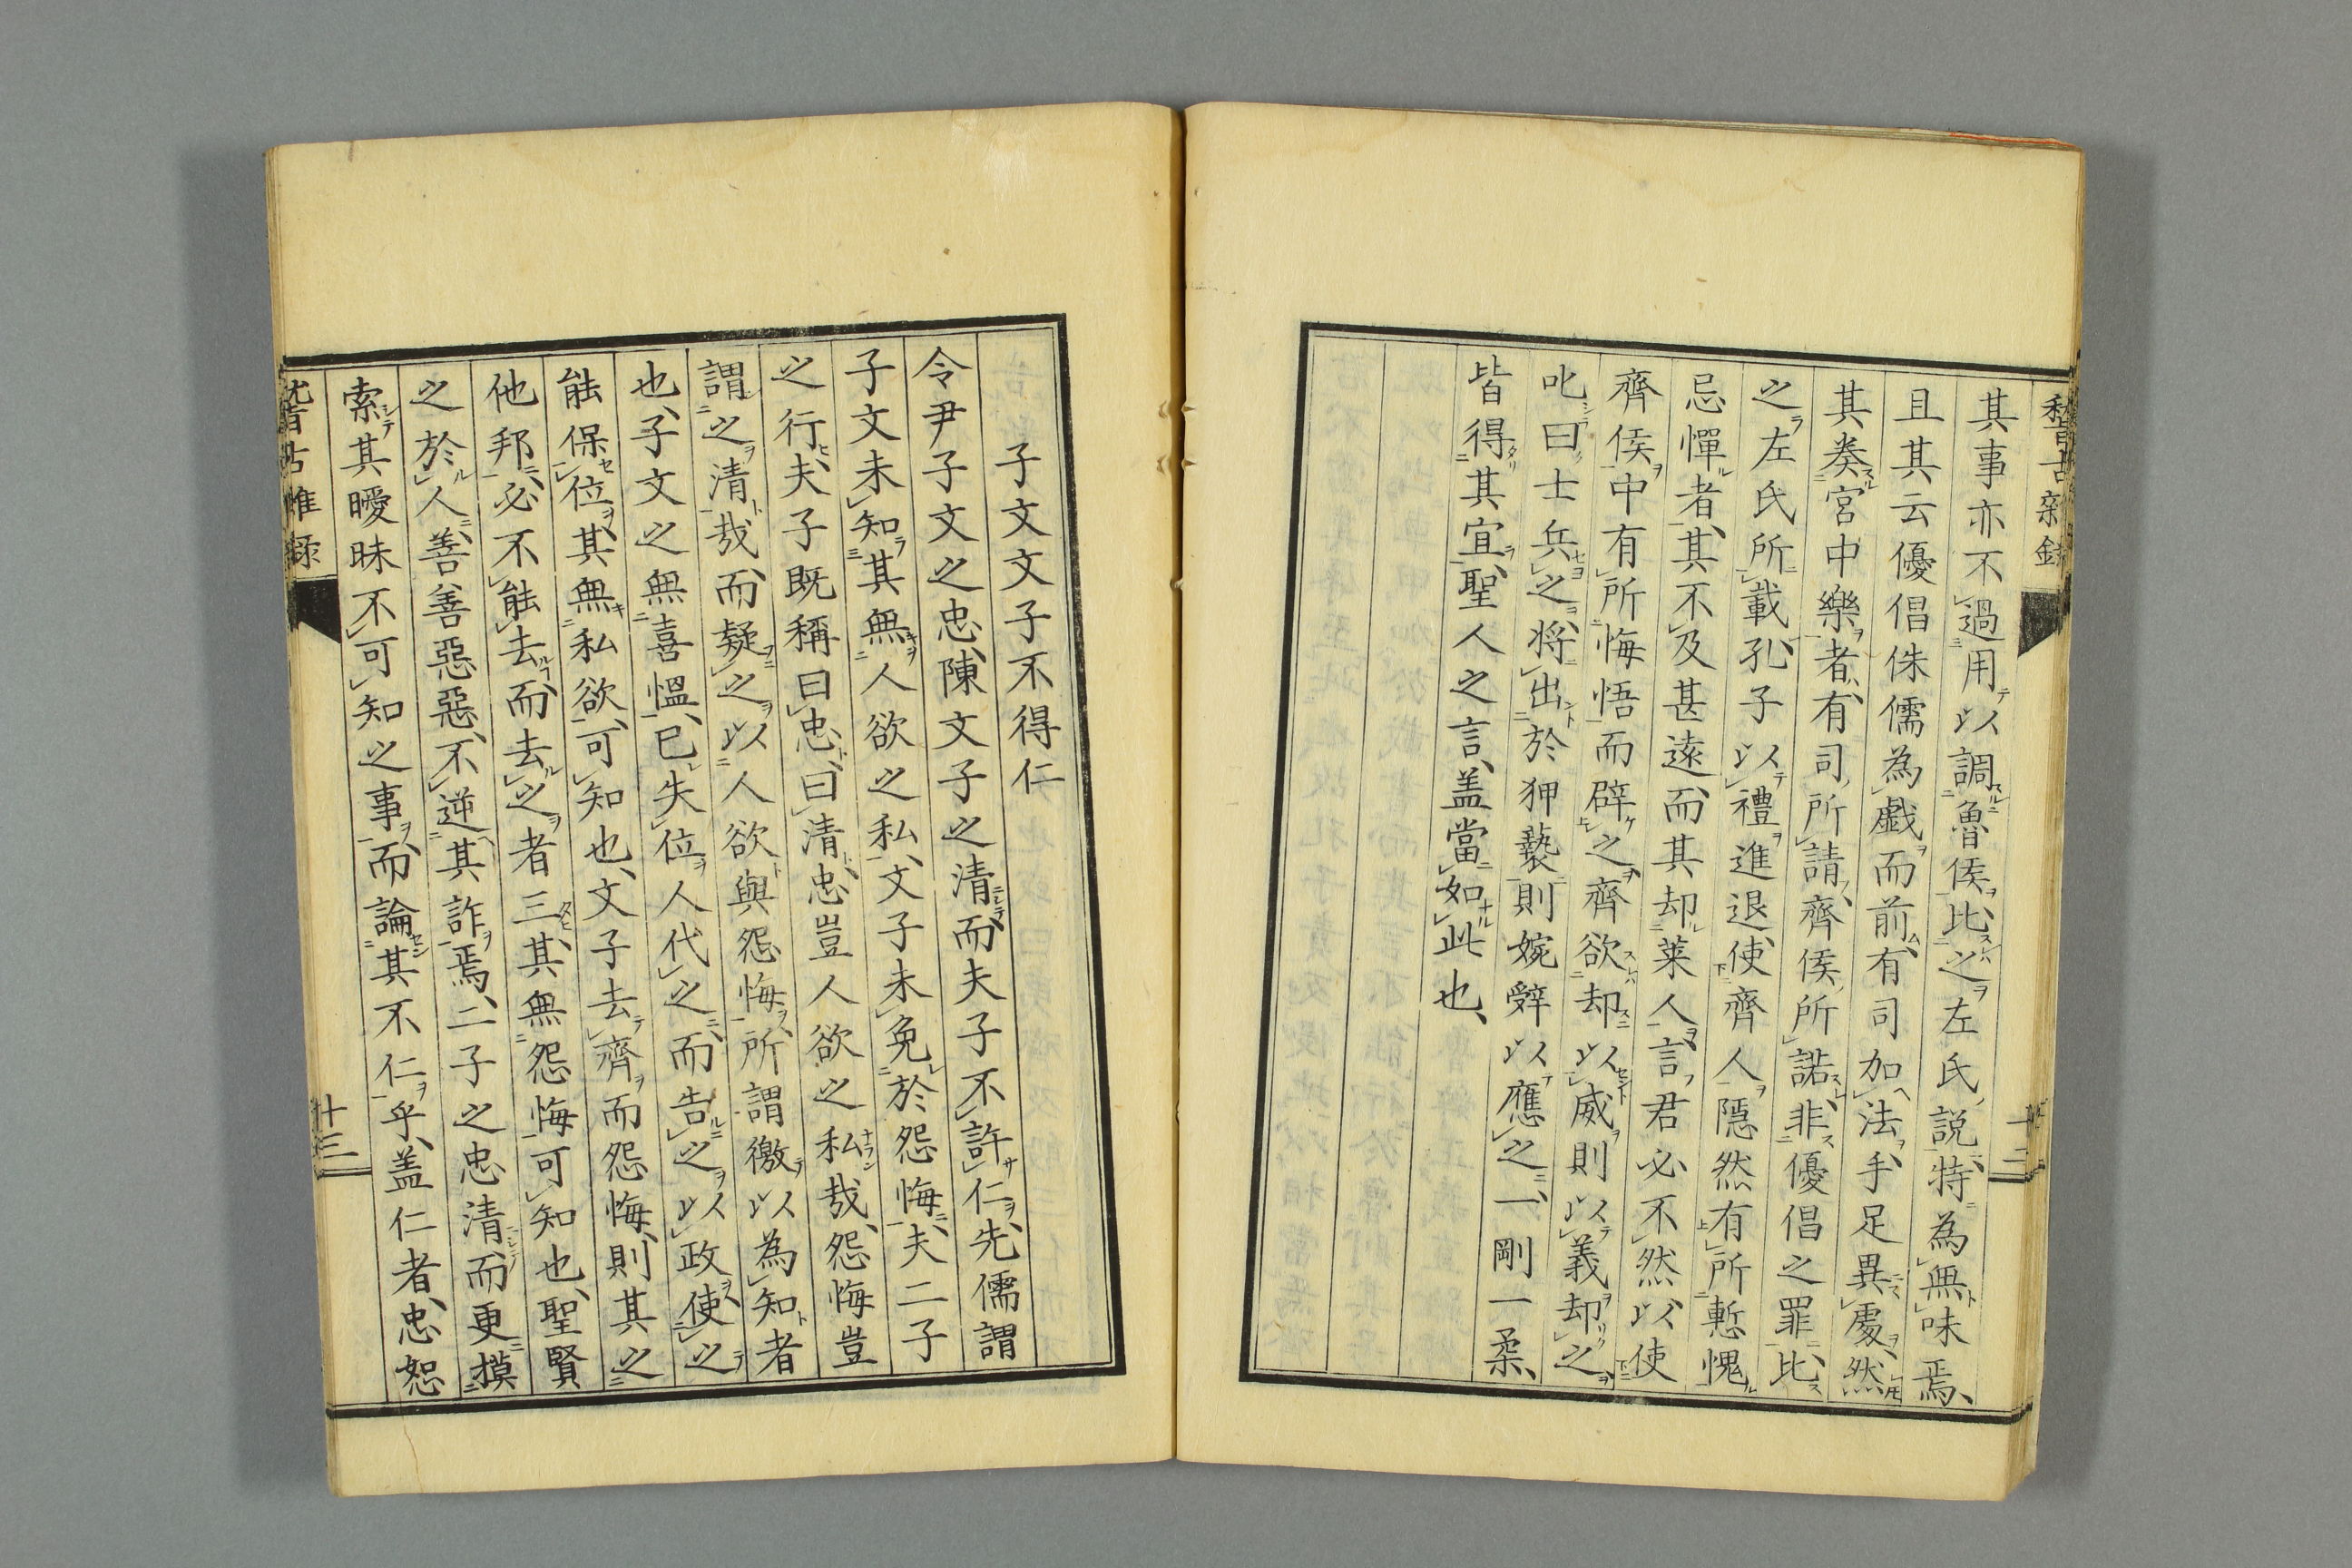 稽古雑録
十二
其事亦不過用以調魯侯、比之左氏説、特為無味焉、
且其云優倡侏儒為戯而前、有司加法、手足異處、然
其奏宮中樂者、有司所請、齊侯所諾、非優倡之罪、比
之左氏所載孔子以禮進退、使齊人隠然有所慙愧
忌憚者、其不及甚遠、而其却莱人言君必不然、以使
齊侯中有所悔悟而辟之、齊欲却以威則以義却之、
叱曰士兵之、将出於狎褻則婉辤以應之、一剛一柔、
皆得其宜、聖人之言、盖當如此也、
子文文子不得仁
令尹子文之忠、陳文子之清、而夫子不許仁、先儒謂
子文未知其無人欲之私、文子未免於怨悔、夫二子
之行、夫子既稱曰忠、曰清、忠豈人欲之私哉、怨悔豈
謂之清哉、而疑之以人欲與怨悔、所謂徼以為知者
也、子文之無喜慍、已失位人代之、而告之以政、使之
能保位、其無私欲、可知也、文子去齊而怨悔、則其之
他邦、必不能去、而去之者三、其無怨悔可知也、聖賢
之於人、善善惡惡、不逆其詐焉、二子之忠清、而更摸
索其曖昧不可知之事、而論其不仁乎、盖仁者、忠恕
稽古雑録
十三